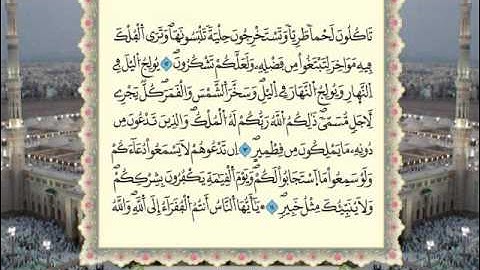 تَاكُلُونَ لَحْماٗ طَرِيّاٗ وَتَسْتَخْرِجُونَ حِلْيَةٗ تَلْبَسُونَهَاۖ وَتَرَى اَلْفُلْكَ
فِيهِ مَوَاخِرَ لِتَبْتَغُواْ مِن فَضْلِهِۦ وَلَعَلَّكُمْ تَشْكُرُونَۖ يُولِجُ اُليْلَ فِے
اِلنَّهَارِ وَيُولِجُ اُلنَّهَارَ فِے اِليْلِۖ وَسَخَّرَ اَلشَّمْسَ وَالْقَمَرَۖ كُلّٞ يَجْرِے
لِأَجَلٖ مُّسَمّىٗۖ ذَٰلِكُمُ اُللَّهُ رَبُّكُمْ لَهُ اُلْمُلْكُۖ وَالذِينَ تَدْعُونَ مِن
دُونِهِۦ مَا يَمْلِكُونَ مِن قِطْمِيرٍۖ اِن تَدْعُوهُمْ لَا يَسْمَعُواْ دُعَآءَكُمْ
وَلَوْ سَمِعُواْ مَا اَسْتَجَابُواْ لَكُمْۖ وَيَوْمَ اَلْقِيَٰمَةِ يَكْفُرُونَ بِشِرْكِكُمْۖ
وَلَا يُنَبِّئُكَ مِثْلُ خَبِيرٖۖ يَٰٓأَيُّهَا اَلنَّاسُ أَنتُمُ اُلْفُقَرَآءُ اِلَى اَللَّهِۖ وَاللَّهُ